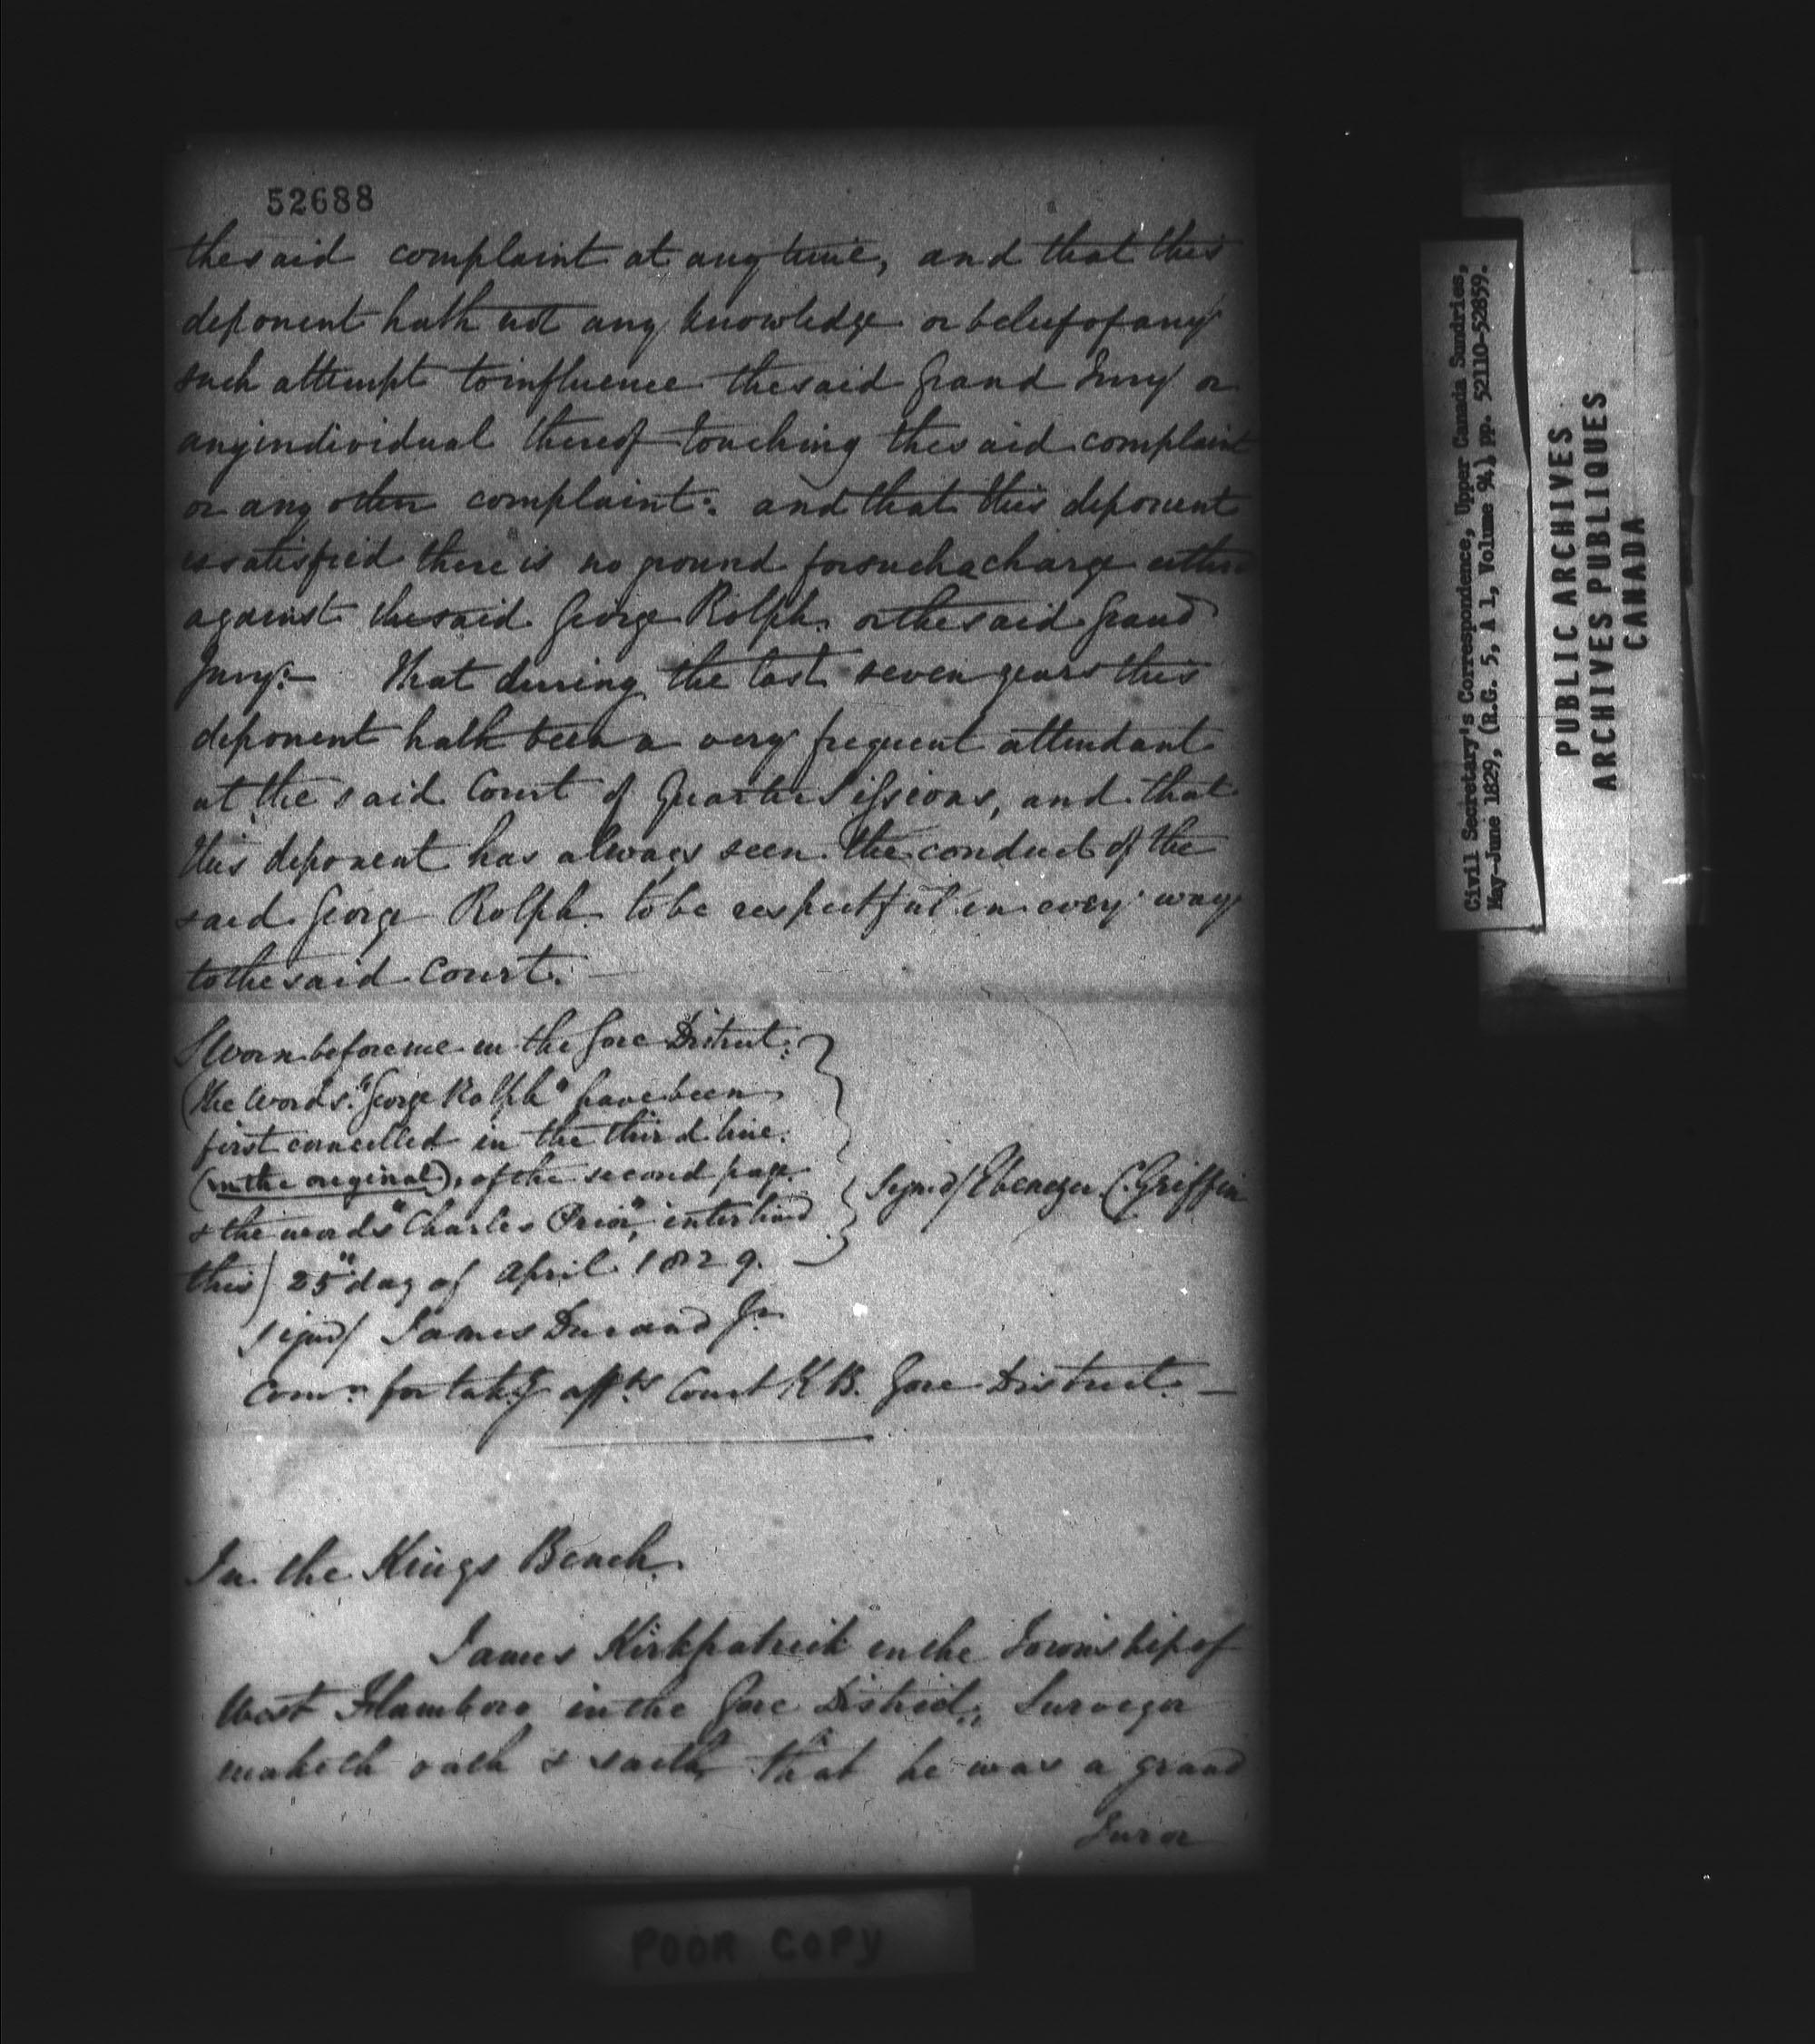 52688
the said complaint at any time, and that this
deponent hath not any knowledge or belief of any
such attempt to influence the said Grand Jury or
any individual thereof touching the said complaint
or any other complaint: and that this deponent
is satisfied there is no ground for such a charge either
against the said George Rolph or the said Grand
Jury:— That during the last seven years this
deponent hath been a very frequent attendant
at the said Court of Quarter Sessions, and that
this deponent has always seen the conduct of the
said George Rolph to be respectful in every way
to the said Court.—
Sworn before me in the Gore District:
(the words "George Rolph" have been
first cancelled in the third line
(in the original), of the second page
& the words "Charles Prior", interlined
this) 25" day of April 1829.—
Signed/ Ebenezer C. Griffin
signd/ James Durand Jr
Comr. for takg affts Court K B. Gore District.—
In the Kings Bench.
James Kirkpatrick in the Township of
West Flamboro in the Gore District, Surveyor
maketh oath & saith, that he was a grand
Juror
POOR COPY
Civil Secretary's Correspondence, Upper Canada Sundries,
May-June 1829, (R.G. 5, A 1, Volume 94) pp. 52110-52859.
PUBLIC ARCHIVES
ARCHIVES PUBLIQUES
CANADA